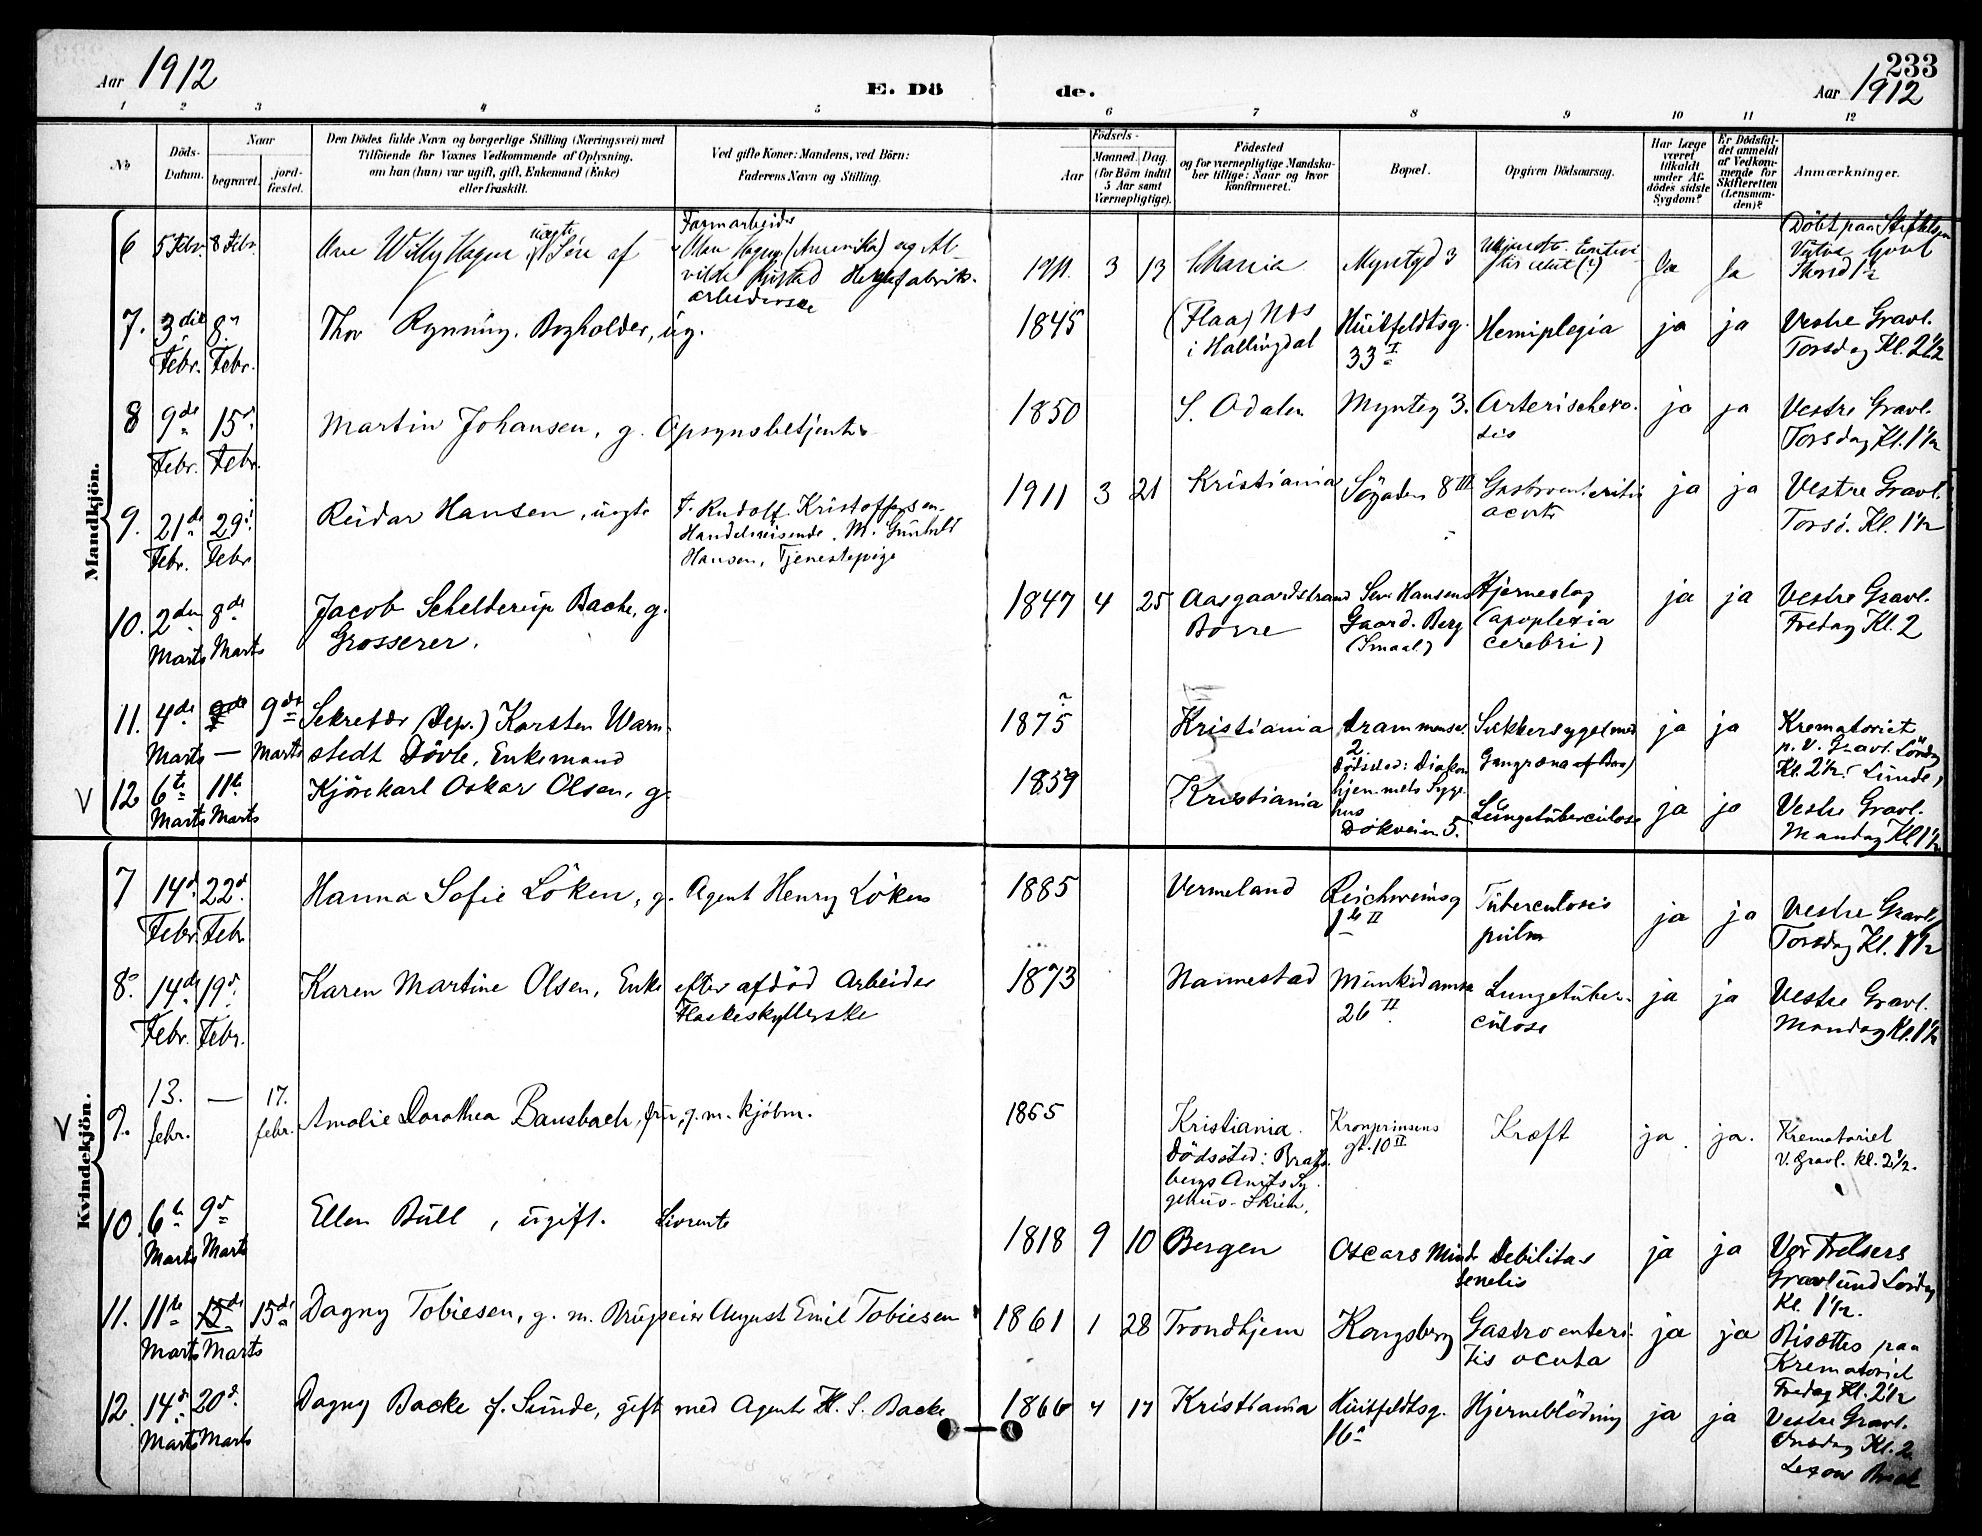 Aar 1912
E. Dö
de.
233
Aar 1912
1 2 3 4 5 6 7 8 9 10 11 12
No
Döds-
Datum.
Naar
begravet.
jord-
fæstet.
Den Dödes fulde Navn og borgerlige Stilling (Næringsvei) med
Tilföiende for Voxnes Vedkommende af Oplysning,
om han (hun) var ugift, gift, Enkemand (Enke)
eller fraskilt.
Ved gifte Koner: Mandens, ved Börn:
Faderens Navn og Stilling.
Födsels-
Aar
Maaned. Dag.
(for Börn indtil
5 Aar samt
Værnepligtige).
Födested
og for værnepligtige Mandska-
ber tillige: Naar og hvor
konfirmeret.
Bopæl.
Opgiven Dödsaarsag.
Har Læge
været
tilkaldt
under Af-
dödes sidste
Sygdom?
Er Dödsfal-
det anmeldt
af Vedkom-
mende for
Skifteretten
(Lensman-
den)?
Anmærkninger.
Mandkjön.
6 5 Febr. 8 Febr.
Willy Hagen uægte Sön af
Farmarbeider
Olav Hagen (Amerika) og Al-
vilde
arbeiderske
1911 3 13
Myntgd 3
Ja Ja
7. 3die Febr. 8. Febr.
Thor Rynning. Bogholder, ug.
1845
(Flaa) Nes
i Hallingdal
Huitfeldtsg.
33 I
Hemiplegia
ja ja
Vestre Gravl.
Torsdag Kl. 2 1/2
8 9de Febr. 15 Febr.
Martin Johansen, g. Opsynsbetjent
1850
S. Odalen
Myntg 3.
Arterischero-
sis
ja ja
Vestre Gravl.
Torsdag Kl. 1 1/2
9. 21de Febr. 29 Febr
Reidar Hansen, uægte
F. Rudolf Kristoffersen
Handelsreisende. M. Gunhild
Hansen, Tjenestepige
1911 3 21
Kristiania
Sögaden 8 III
Gastroenteritis
acuta
ja ja
Vestre Gravl.
Torsd. Kl. 1 1/2
10. 2den Marts 8de Marts
Jacob Schelderup Backe, g.
Grosserer.
1847 4 25
Aasgaardstrand
Borre
Sev. Hansens
Gaard. Berg
(Smaal.)
Hjerneslag
(apoplexia
cerebri)
ja ja
Vestre Gravl.
Fredag Kl. 2
11. 4de Marts — 9de Marts
Sekretær (Dep.) Karsten Warn-
stedt Dövle, Enkemand
1875
Kristiania
Drammensv.
2
Dödssted: Diakon
hjemmets Syge-
hus
Sukkersyge (med
Gangræna af Ben)
ja ja
Krematoriet
p. V. Gravl. Lörd
Kl. 2 1/2. (Sunde)
V 12 6te Marts 11te Marts
Kjörekarl Oskar Olsen, g.
1859
Kristiania
Dokveien 5.
Lungetuberculose
ja ja
Vestre Gravl.
Mandag Kl 1 1/2
Kvindekjön.
7 14d Febr. 22d. Febr
Hanna Sofie Löken, g. Agent Henry Löken
1885
Vermeland
Reichweinsg
1b II
Tuberculosis
pulm
ja ja
Vestre Gravl.
Torsdag Kl. 1 1/2
8. 14de Febr. 19d. Febr.
Karen Martine Olsen, Enke efter afdöd Arbeider
Flaskeskyllerske
1873
Nannestad
Munkedamsv
26 II
Lungetuber-
culose
ja ja
Vestre Gravl.
Mandag Kl. 1 1/2
V 9. 13. febr. — 17. febr.
Amalie Dorothea Bansbach, fru, g. m. kjöbm.
1865
Kristiania.
Dödssted: Brats-
bergs Amts Sy-
gehus - Skien.
Kronprinsens
gt. 10 II
Kræft
ja. ja.
Krematoriet
V. Gravl. kl. 2 1/2.
10. 6te Marts 9d Marts
Ellen Bull, ugift. Livrente
1818 9 10
Bergen
Oscars Minde
Debilitas
senelis
ja ja
Vor Frelsers
Gravlund Lördag
Kl. 1 1/2.
11. 11te Marts 15de Marts 15de
Dagny Tobiesen, g. m. Brugseier August Emil Tobiesen
1861 1 28
Trondhjem
Kongsberg
Gastroenteri-
tis acuta
ja ja
Bisættes paa
Krematoriet
Fredag Kl. 2 1/2
12. 14d. Marts 20d. Marts
Dagny Backe f. Sunde, gift med Agent H. S. Backe
1866 4 17
Kristiania
Huitfeldtsg.
16
Hjerneblödning
ja ja
Vestre Gravl.
Onsdag Kl. 2